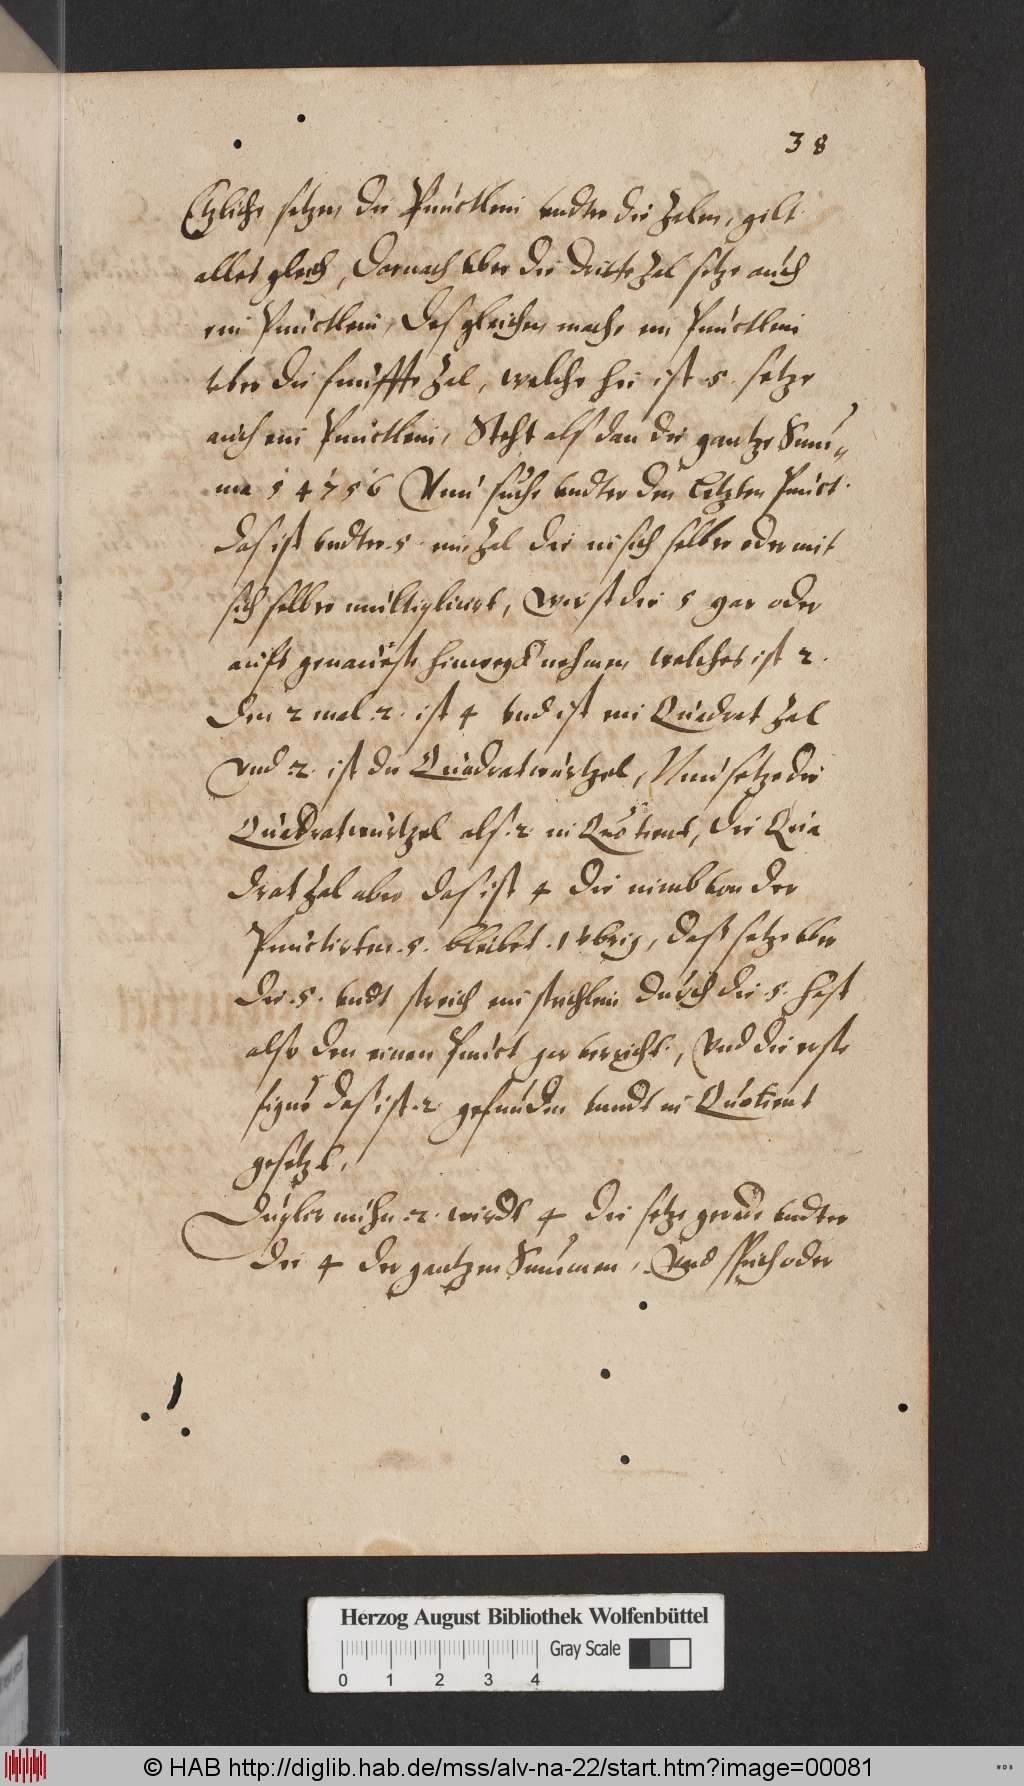 38
Etzliche setzen die Punctlein undter die Zalen, gilt
alles gleich, Darnach uber die dritte Zal setze auch
ein Punctlein, Desgleichen mache ein Punctlein
uber die funffte Zal, welche hie ist 5. setze
auch ein Punctlein, Steht alß dan die gantze Sum„
ma 5 4 7 5 6 Nun suche undter den letzten Punct
das ist undter .5. ein Zal die in sich selber oder mit
sich selber multiplicirt, die 5 gar oder
aufs genaueste hinwegk nehmen welches ist 2.
Den 2 mal .2. ist 4 und ist ein Quadrat Zal
Und .2. ist die Quadratwurtzel, Nun setze die
Quadratwurtzel als .2. in Quotient, die Qua
drat Zal aber das ist 4 die nimb von der
Punctirten .5. bleibet .1 ubrig, daß setze uber
die .5. undt streich ein strichlein durch die .5. hast
also den einen Punct gar verricht, Und die erste
figur das ist .2. gefunden unndt in Quotient
gesetzt,
Duplir nuhn .2. wirdt 4 die setze gerade undter
die 4 der gantzen Summen, Und sprich oder
Herzog August Bibliothek Wolfenbüttel
Gray Scale
0 1 2 3 4
© HAB http://diglib.hab.de/mss/alv-na-22/start.htm?image=00081